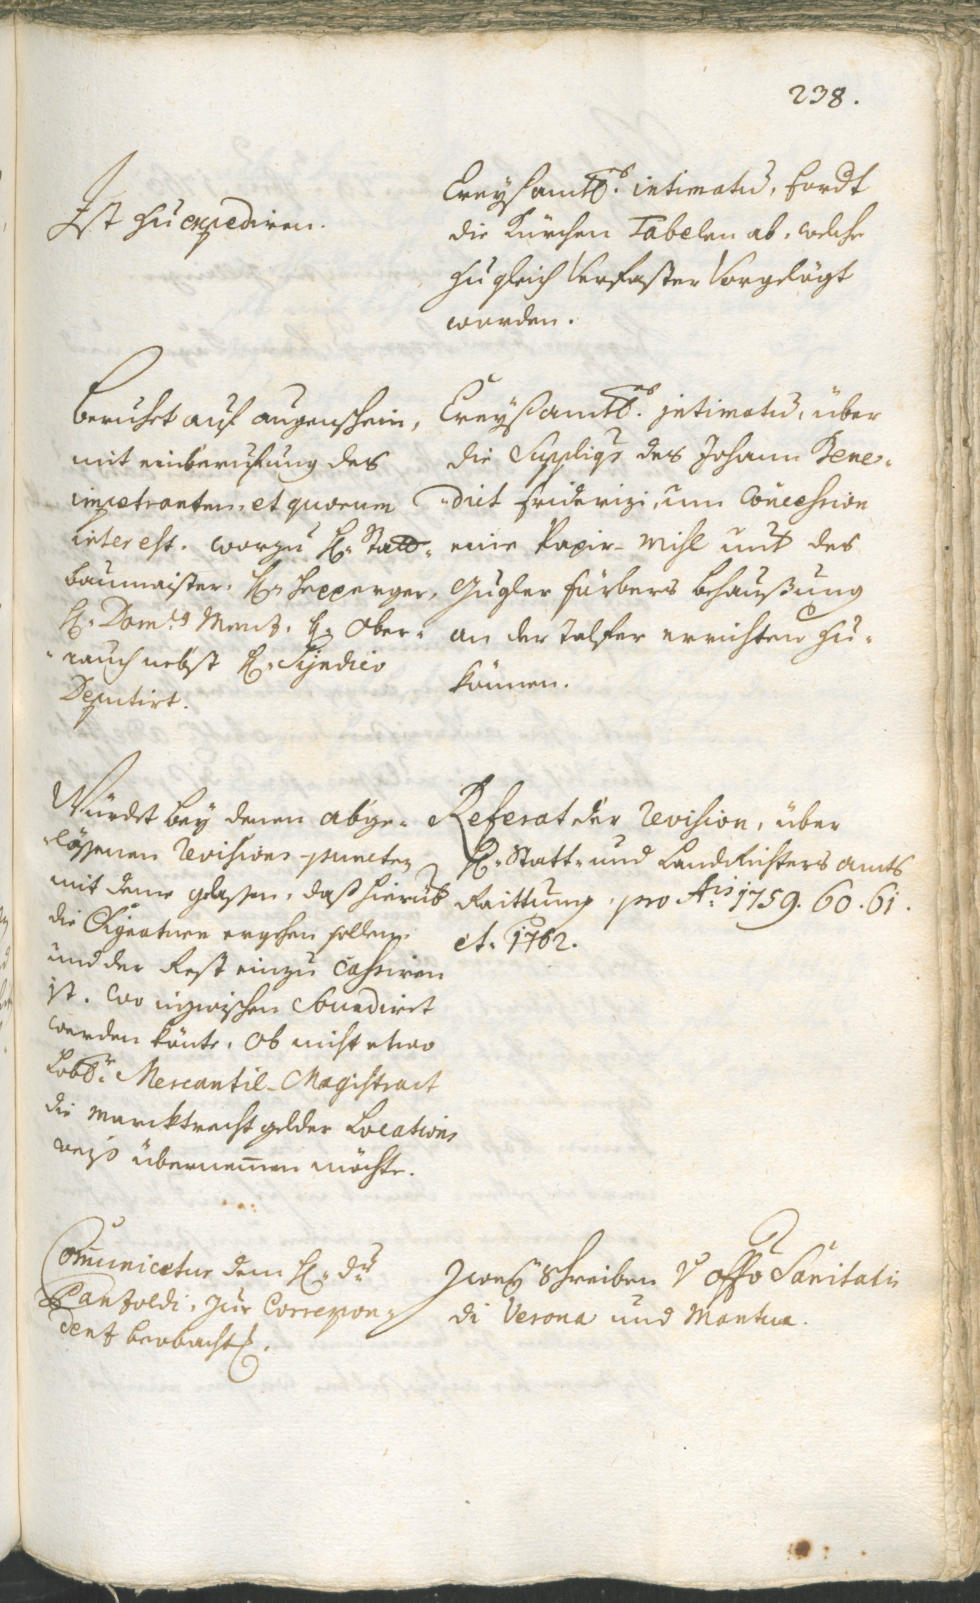 238.
Ist zu expediren.
Creysamtl. intimatū, fordt
die Kürchen Tabelen ab, welche
zugleich verfaster vorgelögt
worden.
Beruhet auf augenschein,
mit einberufung des
impetranten, et quorum
interest. worzu H. Statt-
baumaister, H. Hepperger,
H. Dom. Menz, H. Ober-
rauch nebst H. Syndico
Deputirt.
Creysamtl. intimatū, über
die Suppliqs des Johann Bene-
-dict Friderizi, um Concession
eine Papir-Mihl unt des
Gugler färbers behaußung
an der Talfer errichten zu-
können.
Würdet bey denen abge-
lössenen Revisions-puncten
mit deme gelassen, daß hierüb
die Signatur ergehen sollen
und der Rest einzu Cassiren
ist. wo inzwischen Secundiret
werden könte, ob nicht etwo
Löbl. Mercantil-Magistract
die Marcktrecht gelder Locations
weis übernemen möchte.
Referat der Revision, über
H. Statt- und Landrichters amts
Raittung pro Ais 1759. 60. 61.
et 1762.
Comunicetur dem H. dr
Pantzoldi, zur Correspon-
denz beobacht.
Zwey Schreiben V offo Sanitatis
di Verona und Mantua.